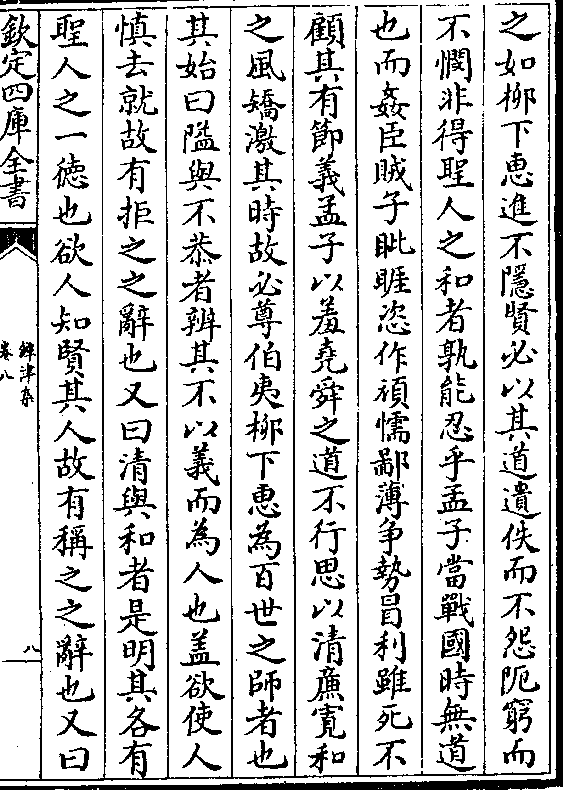 之如柳下恵進不隱賢必以其道遺佚而不怨阨窮而
不憫非得聖人之和者孰能忍乎孟子當戰國時無道
也而姦臣賊子眦睚恣作頑懦鄙薄争勢冒利雖死不
顧其有節義孟子以羞堯舜之道不行思以清廉寛和
之風矯激其時故必尊伯夷柳下恵為百世之師者也
其始曰隘與不恭者辨其不以義而為人也盖欲使人
慎去就故有拒之之辭也又曰清與和者是明其各有
聖人之一徳也欲人知賢其人故有稱之之辭也又曰
欽定四庫全書
鐔津集
卷八
八